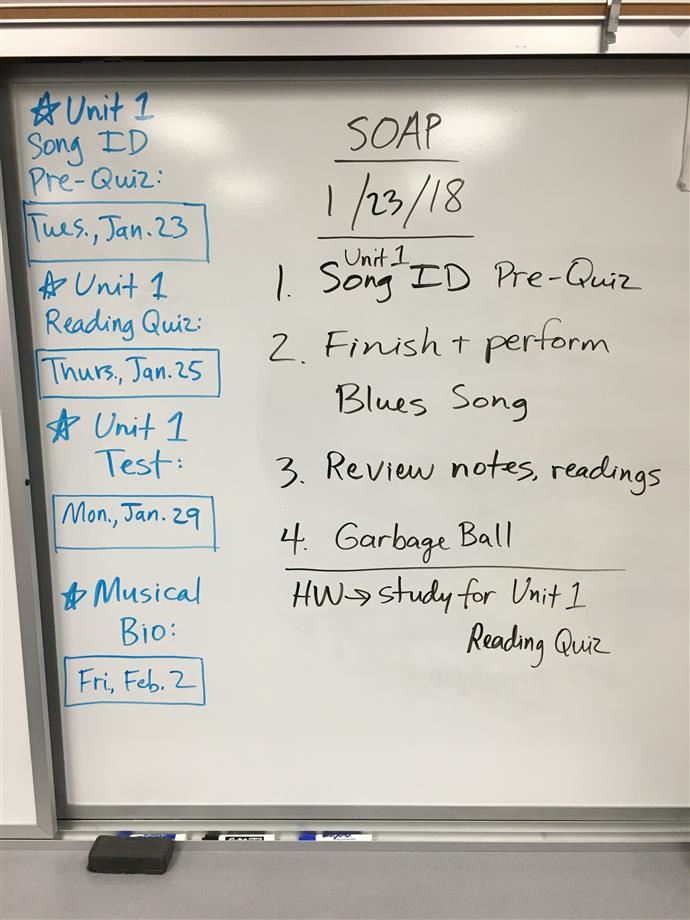 ☆ Unit 1
Song ID
Pre-Quiz:
Tues., Jan. 23
☆ Unit 1
Reading Quiz:
Thurs., Jan. 25
☆ Unit 1
Test:
Mon., Jan. 29
☆ Musical
Bio:
Fri, Feb. 2
SOAP
1/23/18
Unit 1
1. Song ID Pre-Quiz
2. Finish + perform
Blues Song
3. Review notes, readings
4. Garbage Ball
HW → study for Unit 1
Reading Quiz